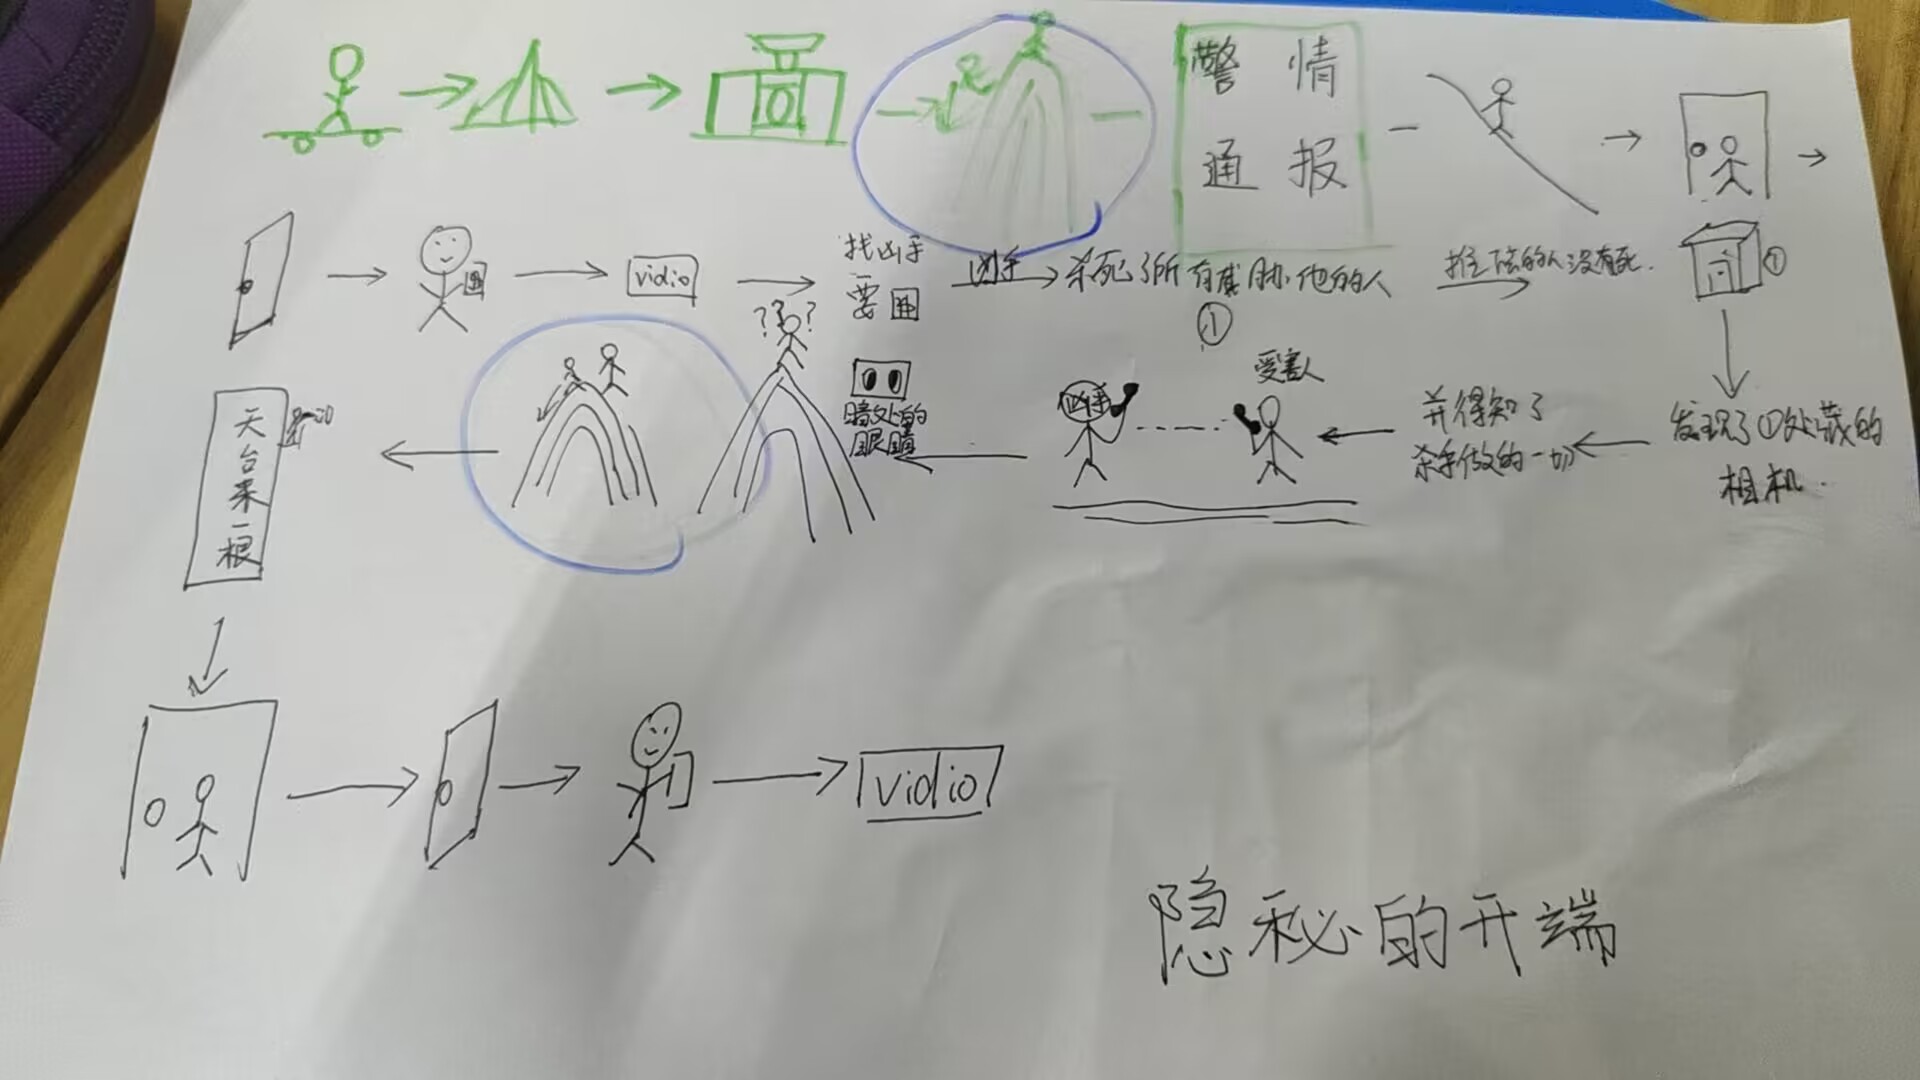 警 情
通 报
vidio
找凶手
要
凶手
杀死了所有威胁他的人
①
推下去的人没有死.
①
发现了①处藏的
相机.
并得知了
杀手做的一切
受害人
凶手
???
暗处的
眼睛
天台来一根
vidio
隐秘的开端